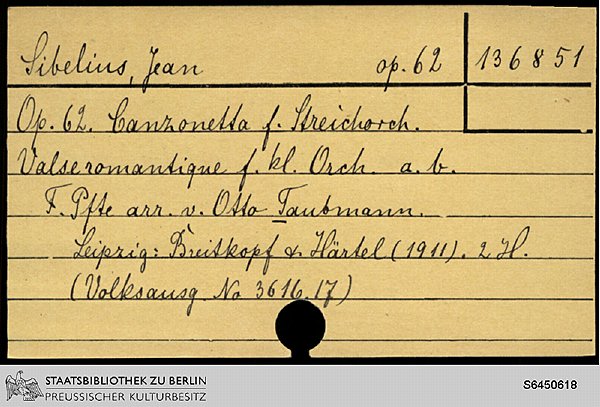 Sibelius, Jean op. 62 136851
Op. 62. Canzonetta f. Streichorch.
Valse romantique f. kl. Orch. a. b.
F. Pfte arr. v. Otto Taubmann.
Leipzig: Breitkopf & Härtel (1911). 2 H.
(Volksausg. No 3616.17)
STAATSBIBLIOTHEK ZU BERLIN
PREUSSISCHER KULTURBESITZ
S6450618